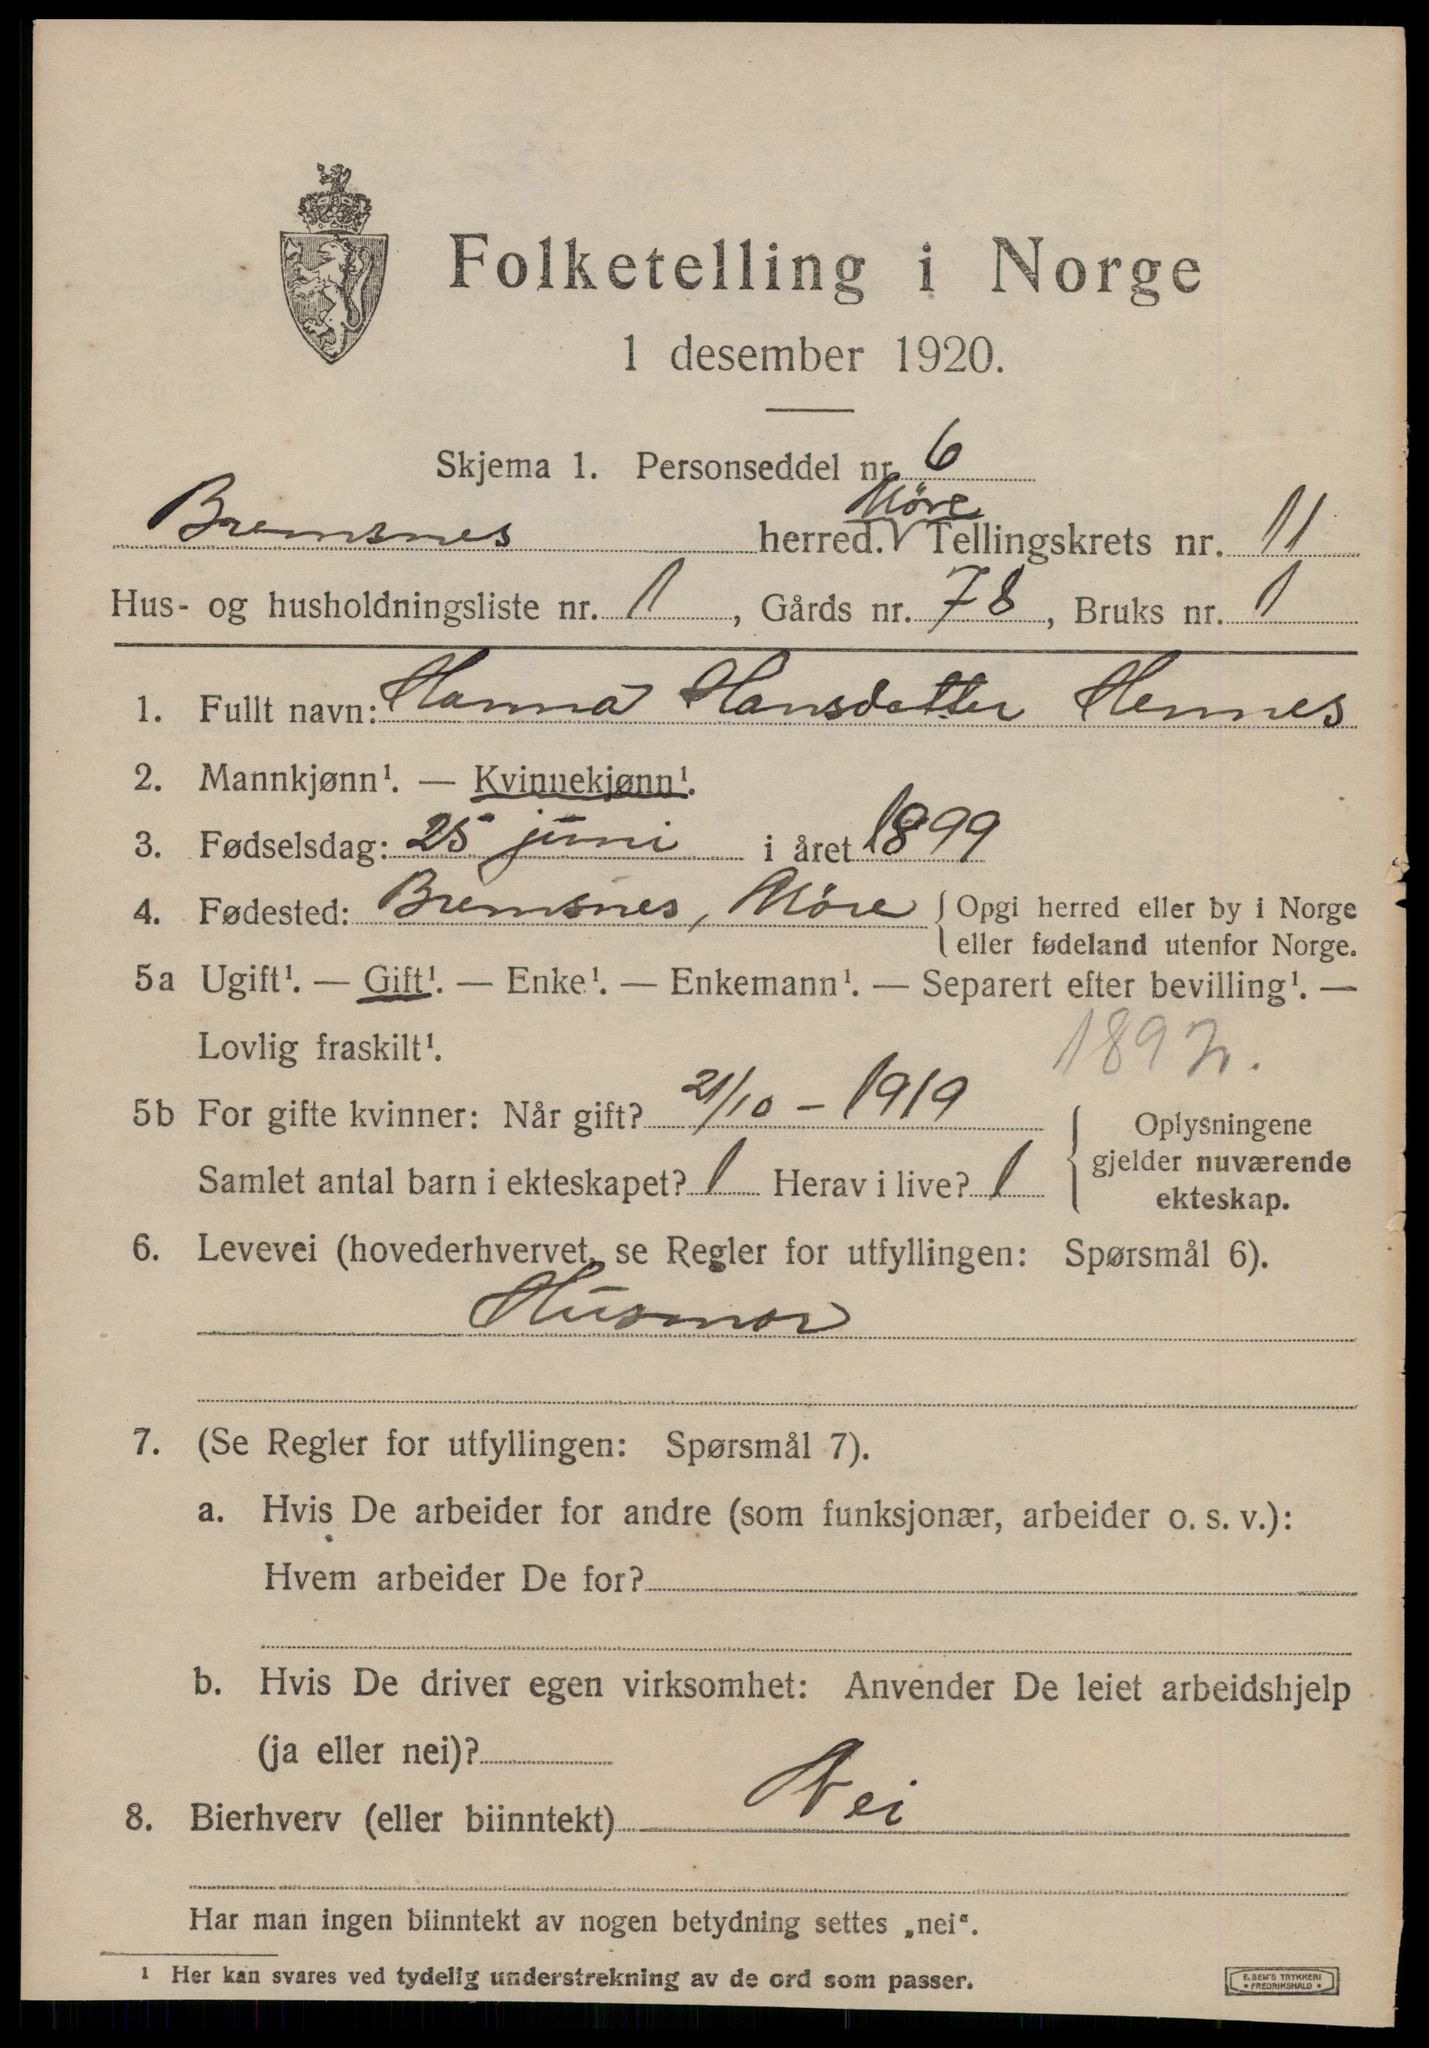 Folketelling i Norge
1 desember 1920.
Skjema 1. Personseddel nr. 6
Møre
Bremsnes herred. V Tellingskrets nr. 11
Hus- og husholdningsliste nr. 1, Gårds nr. 78, Bruks nr. 1
1. Fullt navn: Hanna Hansdatter Hennes
2. Mannkjønn¹. — Kvinnekjønn¹.
3. Fødselsdag: 25 juni i året 1899
4. Fødested: Bremsnes, Møre { Opgi herred eller by i Norge
eller fødeland utenfor Norge.
5a Ugift¹. — Gift¹. — Enke¹. — Enkemann¹. — Separert efter bevilling¹. —
Lovlig fraskilt¹.
5b For gifte kvinner: Når gift? 21/10 - 1919
Samlet antal barn i ekteskapet? 1 Herav i live? 1
{ Oplysningene
gjelder nuværende
ekteskap.
6. Levevei (hovederhvervet, se Regler for utfyllingen: Spørsmål 6).
Husmor
7. (Se Regler for utfyllingen: Spørsmål 7).
a. Hvis De arbeider for andre (som funksjonær, arbeider o. s. v.):
Hvem arbeider De for?
b. Hvis De driver egen virksomhet: Anvender De leiet arbeidshjelp
(ja eller nei)?
8. Bierhverv (eller biinntekt) Nei
Har man ingen biinntekt av nogen betydning settes „nei“.
¹ Her kan svares ved tydelig understrekning av de ord som passer.
E. SEM'S TRYKKERI
* FREDRIKSHALD *